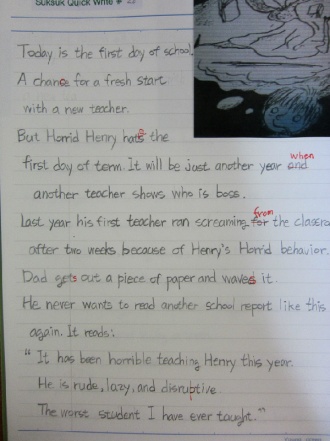 Suksuk Quick Write #
Today is the first day of school.
A chance for a fresh start
with a new teacher.
But Horrid Henry hate the
first day of term. It will be just another year and when
another teacher shows who is boss.
Last year his first teacher ran screaming for from the classro
after two weeks because of Henry's Horrid behavior.
Dad gets out a piece of paper and waves it.
He never wants to read another school report like this
again. It reads:
"It has been horrible teaching Henry this year.
He is rude, lazy, and disruptive
The worst student I have ever taught."